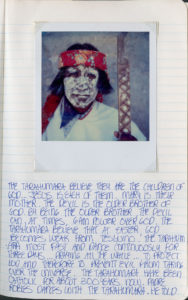 THE TARAHUMARA BELIEVE THEY ARE THE CHILDREN OF
GOD... JESUS IS EACH OF THEM. MARY IS THEIR
MOTHER. THE DEVIL IS THE OLDER BROTHER OF
GOD. BY BEING THE OLDER BROTHER THE DEVIL
CAN, AT TIMES, GAIN POWER OVER GOD. THE
TARAHUMARA BELIEVE THAT AT EASTER GOD
BECOMES WEAK FROM TESGUINO. THE TARAHUM
ARA MUST FAST AND DANCE CONTINUOUSLY FOR
THREE DAYS, PRAYING ALL THE WHILE... TO PROTECT
GOD AND THEREFORE TO PREVENT EVIL FROM TAKING
OVER THE UNIVERSE. THE TARAHUMARA HAVE BEEN
CATHOLIC FOR ABOUT 300 YEARS NOW. PADRE
ROBLES DANCES WITH THE TARAHUMARA. HE TOLD